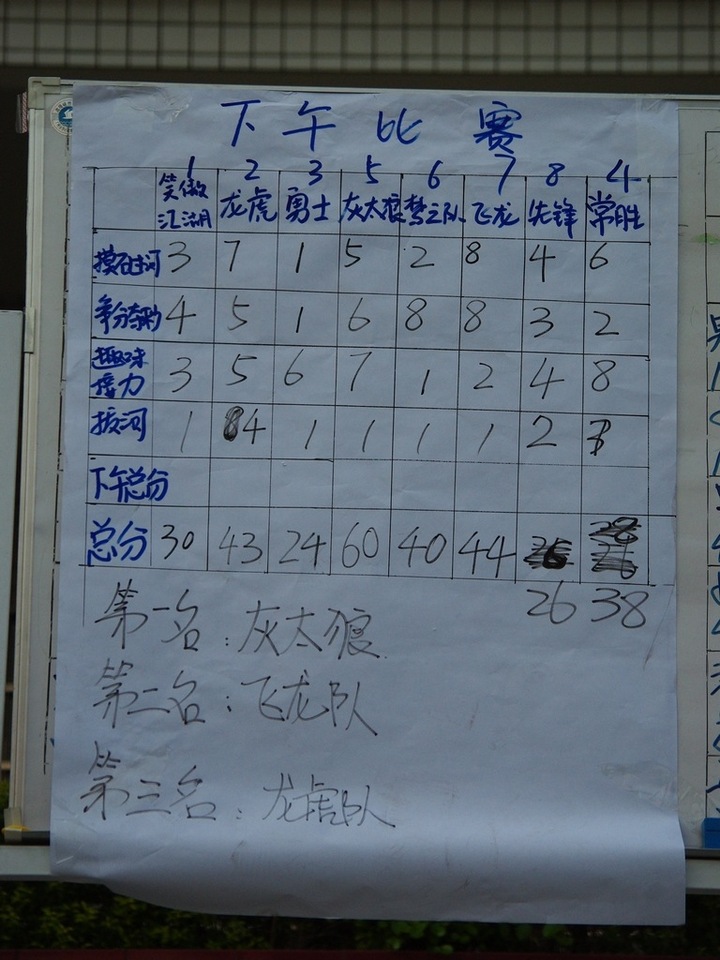 下午比赛
1 2 3 5 6 7 8 4
笑傲江湖 龙虎 勇士 灰太狼 梦之队 飞龙 先锋 常胜
摸石过河 3 7 1 5 2 8 4 6
争分夺秒 4 5 1 6 8 8 3 2
趣味接力 3 5 6 7 1 2 4 8
拔河 1 4 1 1 1 1 2
下午总分
总分 30 43 24 60 40 44
26 38
第一名:灰太狼
第二名:飞龙队
第三名:龙虎队